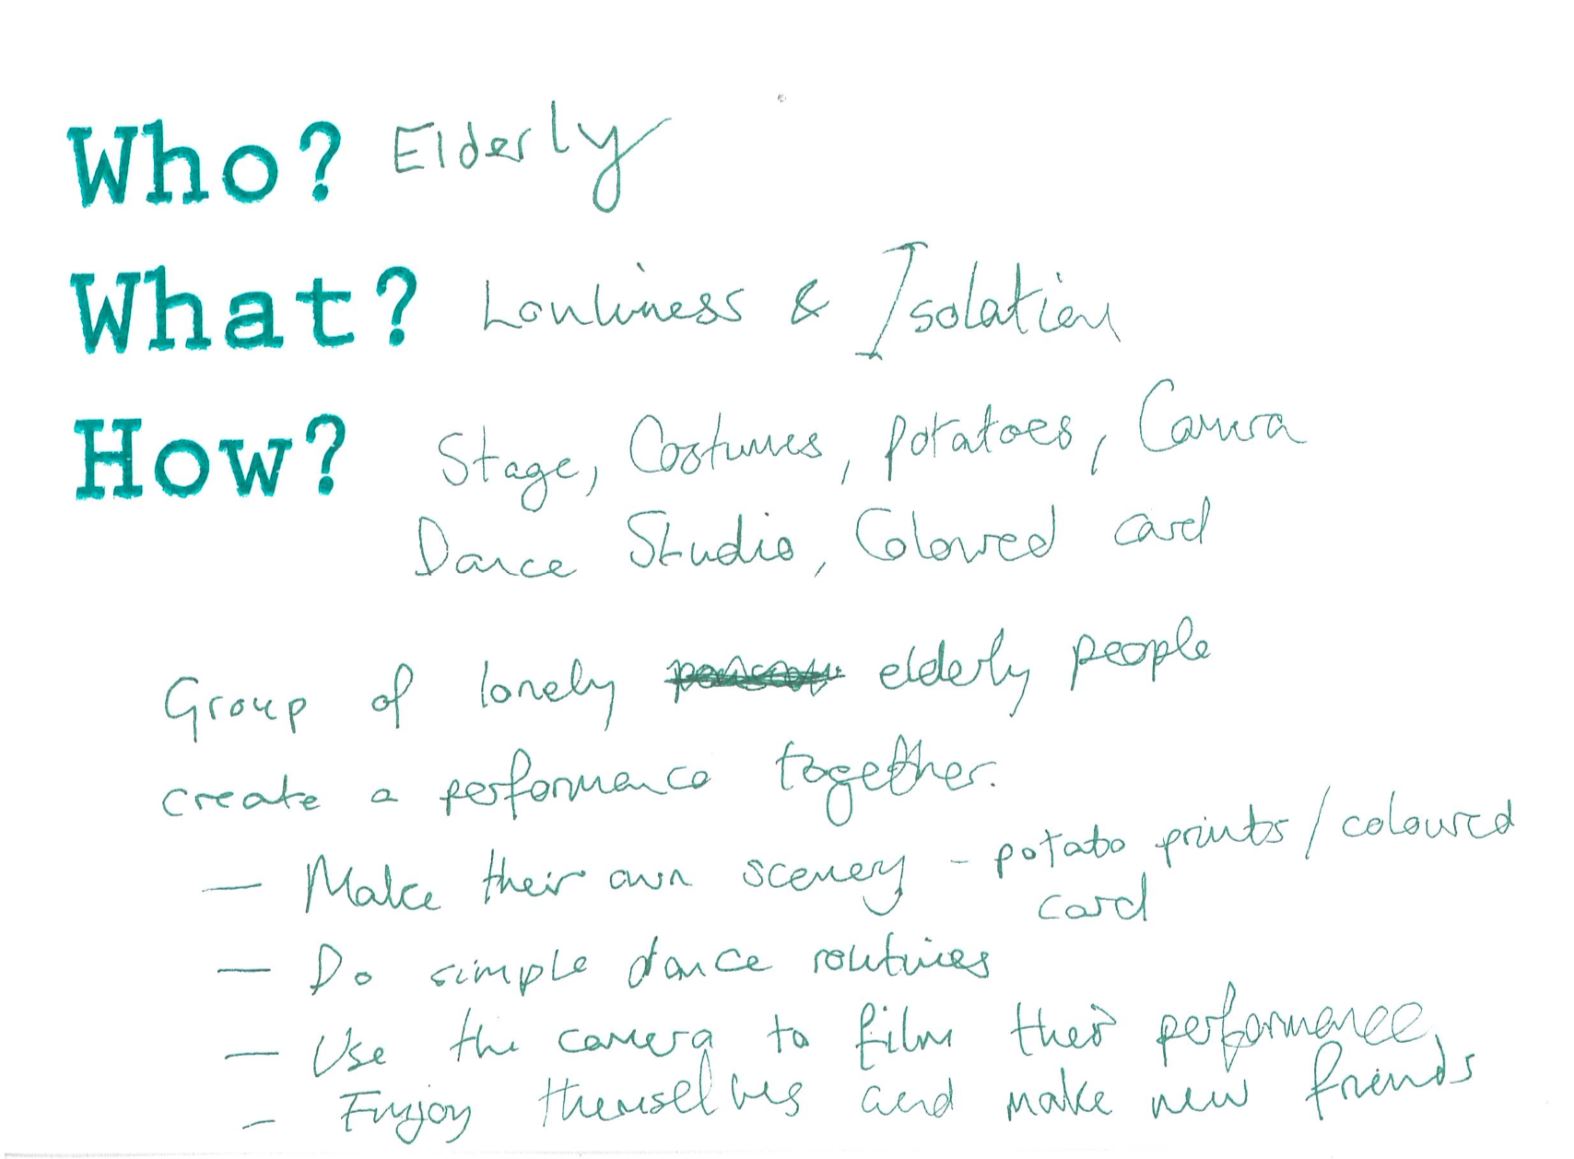 Who? Elderly
What? Lonliness & Isolation
How? Stage, Costumes, potatoes, Camera
Dance Studio, Coloured card
Group of lonely elderly people
create a performance together.
— Make their own scenery - potato prints / coloured
card
— Do simple dance routines
— Use the camera to film their performance
— Enjoy themselves and make new friends